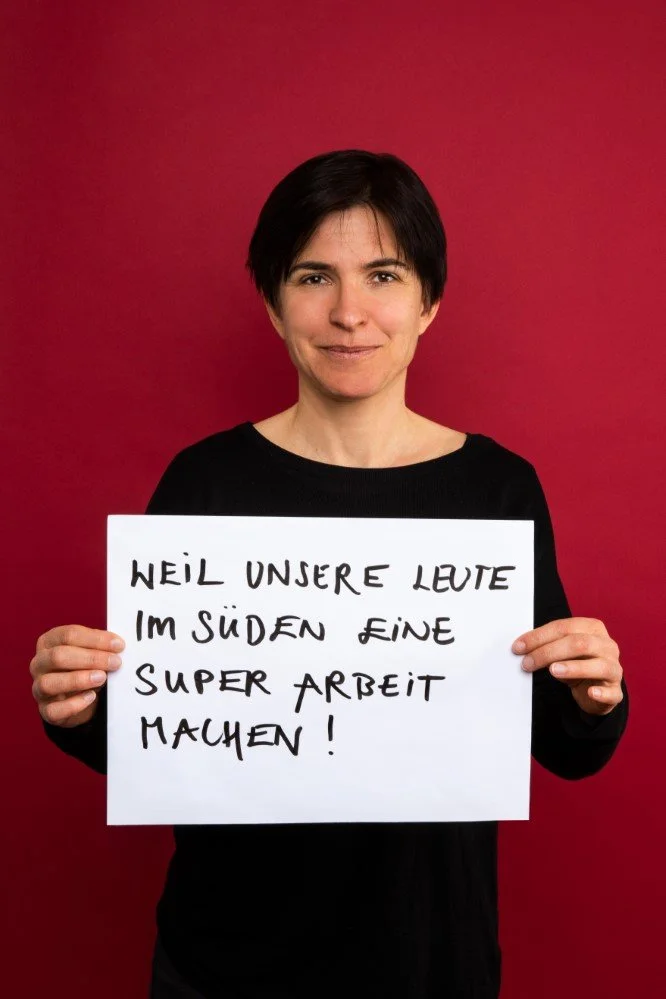 WEIL UNSERE LEUTE
IM SÜDEN EINE
SUPER ARBEIT
MACHEN !